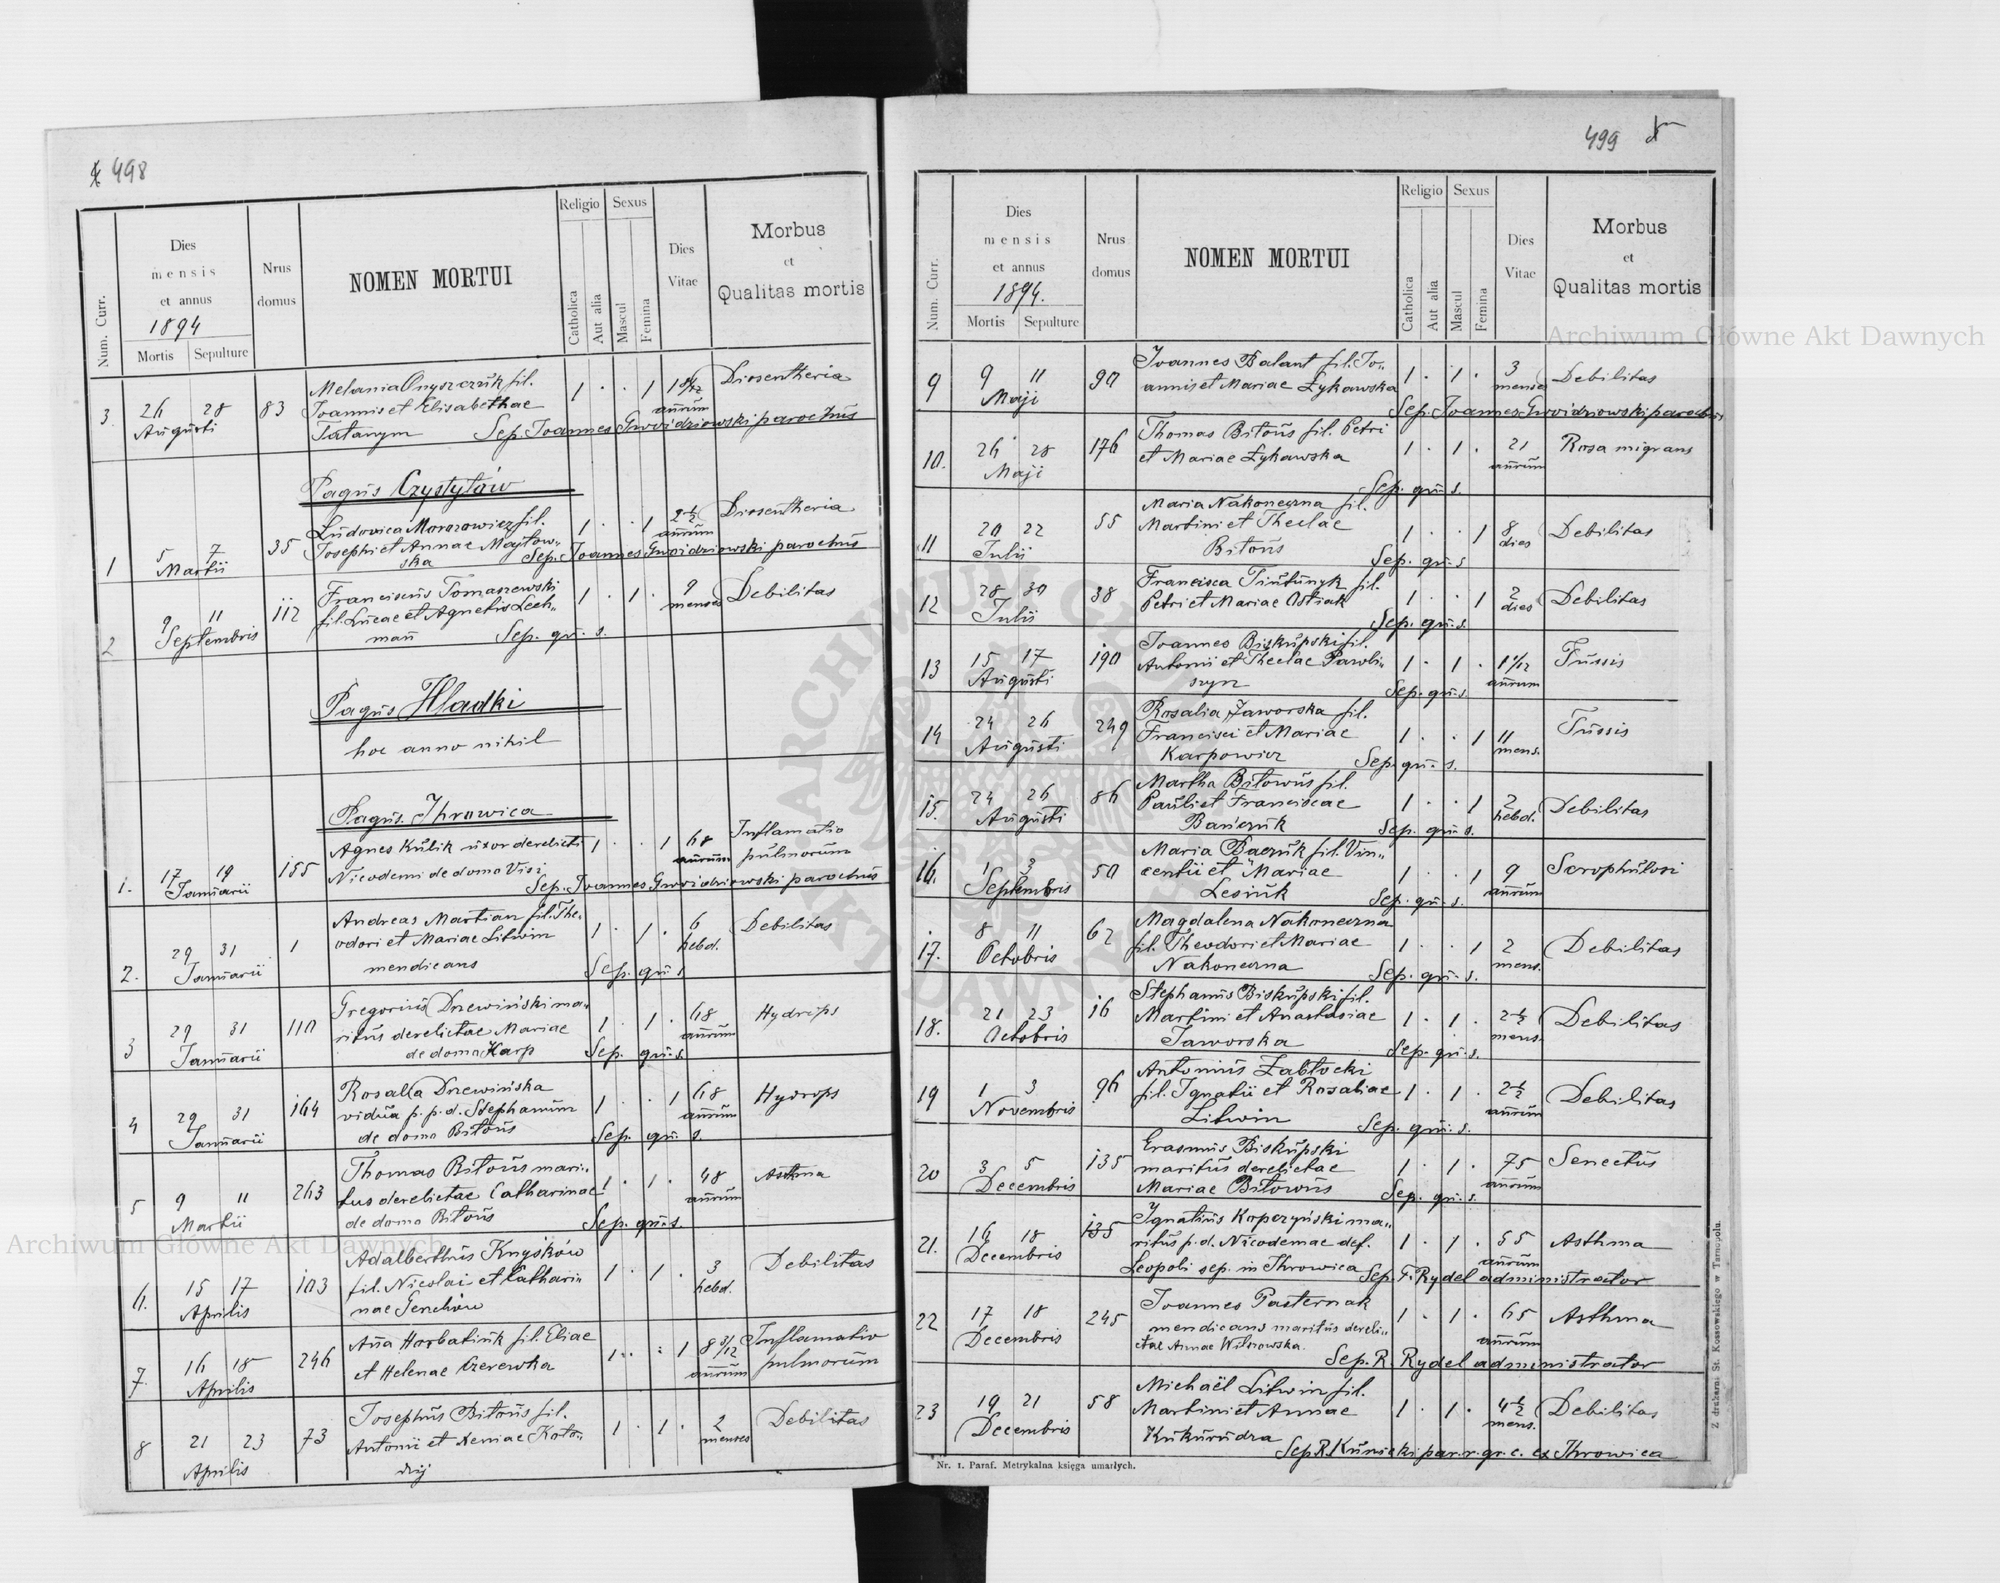 498
Num. Curr.
Dies
mensis
et annus
1894
Mortis Sepulture
Nrus
domus
NOMEN MORTUI
Religio
Catholica
Aut alia
Sexus
Mascul
Femina
Dies
Vitae
Morbus
et
Qualitas mortis
3 26 28 Augusti 83
Melania Onyszczuk fil.
Joannis et Elisabethae
Tataryn
1 . . 1
annorum
Dissentheria
Sep. Joannes Gwoidziowski parochus
Pagus Czystyłów
1 5 7 Martii 35
Ludovica Morozowicz fil.
Josephi et Annae Majtow-
ska
1 . . 1 2½ annorum
Dissentheria
Sep. Joannes Gwoidziowski parochus
2 9 11 Septembris 112
Franciscus Tomaszewski
fil. Lucae et Agnetis Lech-
man
1 . 1 . 9 menses
Debilitas
Sep. qu. s.
Pagus Hladki
hoc anno nihil
Pagus Ihrowica
1. 17 19 Januarii 155
Agnes Kulik uxor derelicti
Nicodemi de domo Visi
1 . . 1 68 annorum
Inflamatio
pulmorum
Sep. Joannes Gwoidziowski parochus
2. 29 31 Januarii 1
Andreas Martian fil. The-
odori et Mariae Litwin
mendicans
1 . 1 . 6 hebd.
Debilitas
Sep. qu. s.
3 29 31 Januarii 110
Gregorius Dzewiński ma-
ritus derelictae Mariae
de domo Karp
1 . 1 . 68 annorum
Hydrops
Sep. qu. s.
4 29 31 Januarii 164
Rosalia Dzewińska
vidua p. p. d. Stephanum
de domo Bitous
1 . . 1 68 annorum
Hydrops
Sep. qu. s.
5 9 11 Martii 263
Thomas Bitous mari-
tus derelictae Catharinae
de domo Bitous
1 . 1 . 48 annorum
Asthma
Sep. qu. s.
6. 15 17 Aprilis 103
Adalberthus Knyśków
fil. Nicolai et Cathari-
nae
1 . 1 . 3 hebd.
Debilitas
7. 16 18 Aprilis 246
Anna Horbatiuk fil. Eliae
et Helenae Czerewka
1 . . 1 8 3/12 annorum
Inflamatio
pulmorum
8 21 23 Aprilis 73
Josephus Bitous fil.
Antonii et Xeniae Koto-
dij
1 . 1 . 2 menses
Debilitas
499
Num. Curr.
Dies
mensis
et annus
1894.
Mortis Sepulture
Nrus
domus
NOMEN MORTUI
Religio
Catholica
Aut alia
Sexus
Mascul
Femina
Dies
Vitae
Morbus
et
Qualitas mortis
9 9 11 Maji 90
Joannes Balant fil. Jo-
annis et Mariae Łykawska
1 . 1 . 3 menses
Debilitas
Sep. Joannes Gwoidziowski parochus
10. 26 28 Maji 176
Thomas Bitous fil. Petri
et Mariae Łykawska
1 . 1 . 21 annorum
Rosa migrans
Sep. qu. s.
11 20 22 Julii 55
Maria Nakoneczna fil.
Martini et Theclae
Bitous
1 . . 1 8 dies
Debilitas
Sep. qu. s
12 28 30 Julii 38
Francisca Tiutunyk fil.
Petri et Mariae Ostiak
1 . . 1 2 dies
Debilitas
Sep. qu. s.
13 15 17 Augusti 190
Joannes Biskupski fil.
Antonii et Theclae Pawli-
szyn
1 . 1 . 1 1/12 annorum
Tussis
Sep. qu. s.
14 24 26 Augusti 249
Rosalia Jaworska fil.
Francisci et Mariae
Karpowicz
1 . . 1 11 mens.
Tussis
Sep. qu. s.
15. 24 26 Augusti 86
Martha Bitowus fil.
Pauli et Franciscae
Bańczuk
1 . . 1 2 hebd.
Debilitas
Sep. qu. s.
16. 1 3 Septembris 50
Maria Baczuk fil. Vin-
centii et Mariae
Lesiuk
1 . . 1 9 annorum
Scrophulosi
Sep. qu. s.
17. 8 11 Octobris 62
Magdalena Nakoneczna
fil. Theodori et Mariae
Nakoneczna
1 . . 1 2 mens.
Debilitas
Sep. qu. s.
18. 21 23 Octobris 16
Stephanus Biskupski fil.
Martini et Anastasiae
Jaworska
1 . 1 . 2½ mens.
Debilitas
Sep. qu. s.
19 1 3 Novembris 96
Antonius Zabłocki
fil. Ignatii et Rosaliae
Litwin
1 . 1 . 2½ annorum
Debilitas
Sep. qu. s.
20 3 5 Decembris 135
Erasmus Biskupski
maritus derelictae
Mariae Bitowus
1 . 1 . 75 annorum
Senectus
Sep. qu. s.
21. 16 18 Decembris 135
Ignatius Koperzyński ma-
ritus p. d. Nicodemae def.
Leopoli sep. in Ihrowica
1 . 1 . 55 annorum
Asthma
Sep. F. Rydel administrator
22 17 18 Decembris 245
Joannes Pasternak
mendicans maritus dereli-
ctae Annae Wiszowska.
1 . 1 . 65 annorum
Asthma
Sep. R. Rydel administrator
23 19 21 Decembris 58
Michaël Litwin fil.
Martini et Annae
Kukurudza
1 . 1 . 4½ mens.
Debilitas
Sep. R. Kunicki par. r. gr. c. ex Ihrowica
Nr. 1. Paraf. Metrykalna księga umarłych.
Z drukarni St. Kossowskiego w Tarnopolu.
Archiwum Główne Akt Dawnych
Archiwum Główne Akt Dawnych
ARCHIWUM GŁÓWNE AKT DAWNYCH